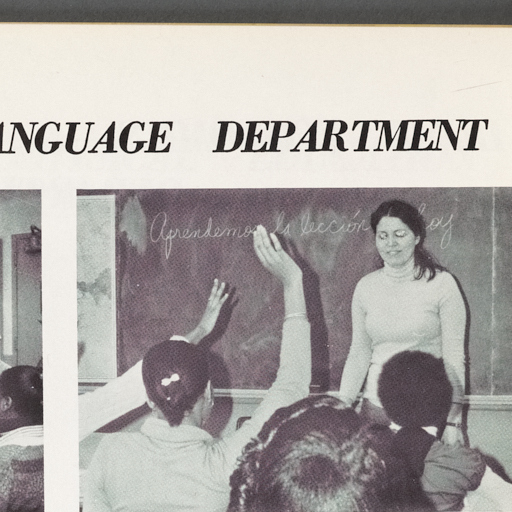 ANGUAGE DEPARTMENT
Aprendemos la lección hoy